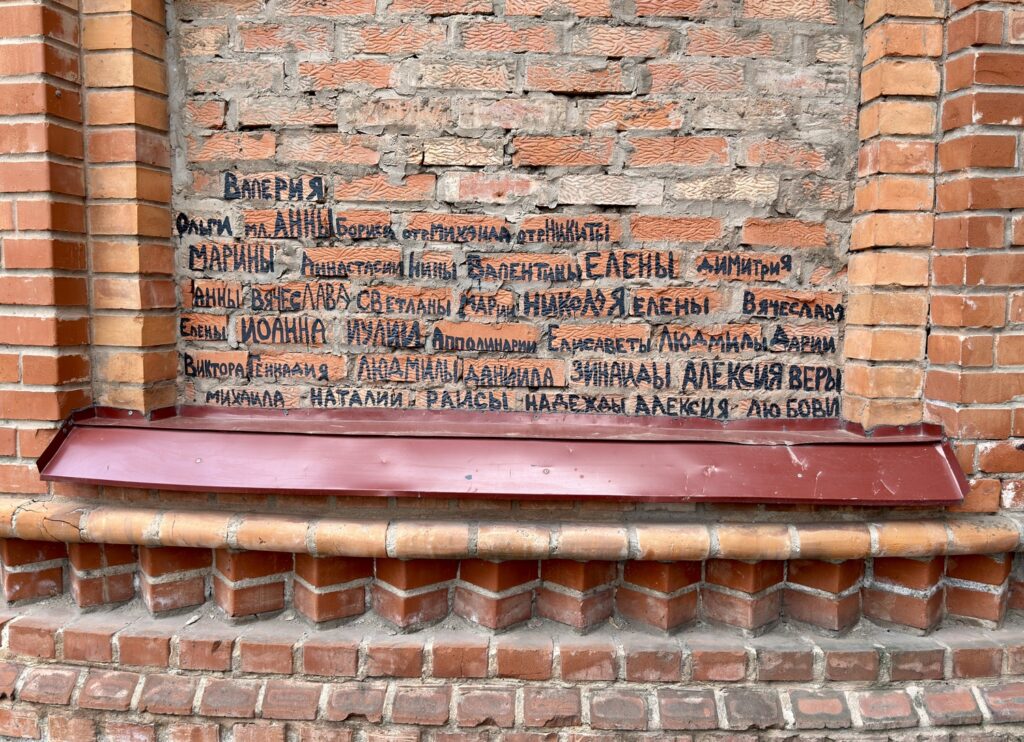 ВАЛЕРИЯ
ОЛЬГИ МЛ. АННЫ БОРИСА ОТР МИХАИЛА ОТР НИКИТЫ
МАРИНЫ АННАСТАСИИ НИНЫ ВАЛЕНТИНЫ ЕЛЕНЫ ДИМИТРИЯ
АННЫ ВЯЧЕСЛАВА СВЕТЛАНЫ МАРИИ НИКОЛАЯ ЕЛЕНЫ ВЯЧЕСЛАВА
ЕЛЕНЫ ИОАННА ИУЛИИ АППОЛИНАРИИ ЕЛИСАВЕТЫ ЛЮДМИЛЫ ДАРИИ
ВИКТОРА ГЕННАДИЯ ЛЮДМИЛЫ ДАНИИЛА ЗИНАИДЫ АЛЕКСИЯ ВЕРЫ
МИХАИЛА НАТАЛИИ РАИСЫ НАДЕЖДЫ АЛЕКСИЯ ЛЮБОВИ